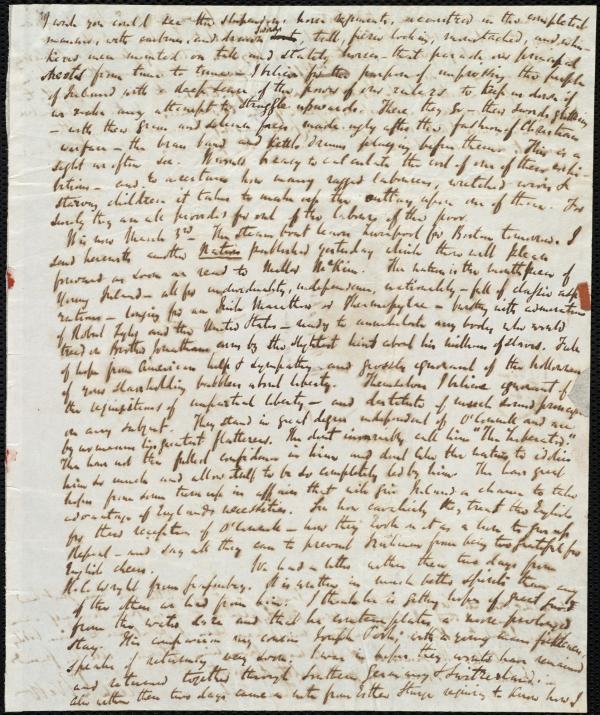 I wish you could see the stupendous horse regiments, accoutred in the completest
manner, with cuirasses, and tall, fierce looking, mustached, and whis-
kered men mounted on tall and stately horses - that parade our principal
streets from time to time - I believe for the purpose of impressing the people
of Ireland with a deep sense of the power of our rulers to keep us down if
we make any attempt to struggle upwards. There they go - their swords glittering
- with their grim and solemn faces made ugly after the fashion of Christian
warfare - the brass band and kettle drums playing before them. This is a
sight we often see. It would be easy to calculate the cost of one of these exhi-
bitions - and to ascertain how many ragged labourers, wretched wives, &
starving children it takes to make up the outlay upon one of them. For
surely they are all provided for out of the labour of the poor.
It is now March 3rd. The steam boat leaves Liverpool for Boston tomorrow. I
send herewith another Nation published yesterday which thou will please
forward as soon as read to Miller McKim. The nation is the mouthpiece of
Young Ireland - all for individuality, independence, nationality - full of classic aspi-
rations - longing for an Irish Marathon or Thermopylae - bursting with admiration
of Robert Tyler and the United States - ready to annihilate any body who would
tread on Brother Jonathan's corns by the slightest hint about his millions of slaves. Full
of hope from American help & sympathy and grossly ignorant of the hollowness
of your slaveholding babblers about liberty. Themselves I believe ignorant of
the requisitions of impartial liberty - and destitute of much sound principle
on any subject. They stand in great degree independent of O'Connell and are
by no means his greatest flatterers. The don't invariably call him "The Liberator."
The have not the fullest confidence in him and don't like the nation to idolize
him so much and allow itself to be so completely led by him. The have great
hopes from some turn up in affairs that will give Ireland a chance to take
advantage of England's necessities. See how carefully they treat the English
for their reception of O'Connell - how they look on it as a lure to give up
Repeal - and say all they can to prevent Irishmen from being too grateful for
English cheers. We had a letter within these two days from
H.C. Wright from Graefenberg. It is written in much better spirits than any
of the others we had from him. I think he is getting hopes of great good
from the water cure and that he contemplates a more prolonged
stay. His companion my cousin Joseph
speaks of returning very soon. I was in hopes they would have remained
and returned together through Southern Germany & Switzerland. -
Also within these two days came a note from Esther Sturge requiring to know how I